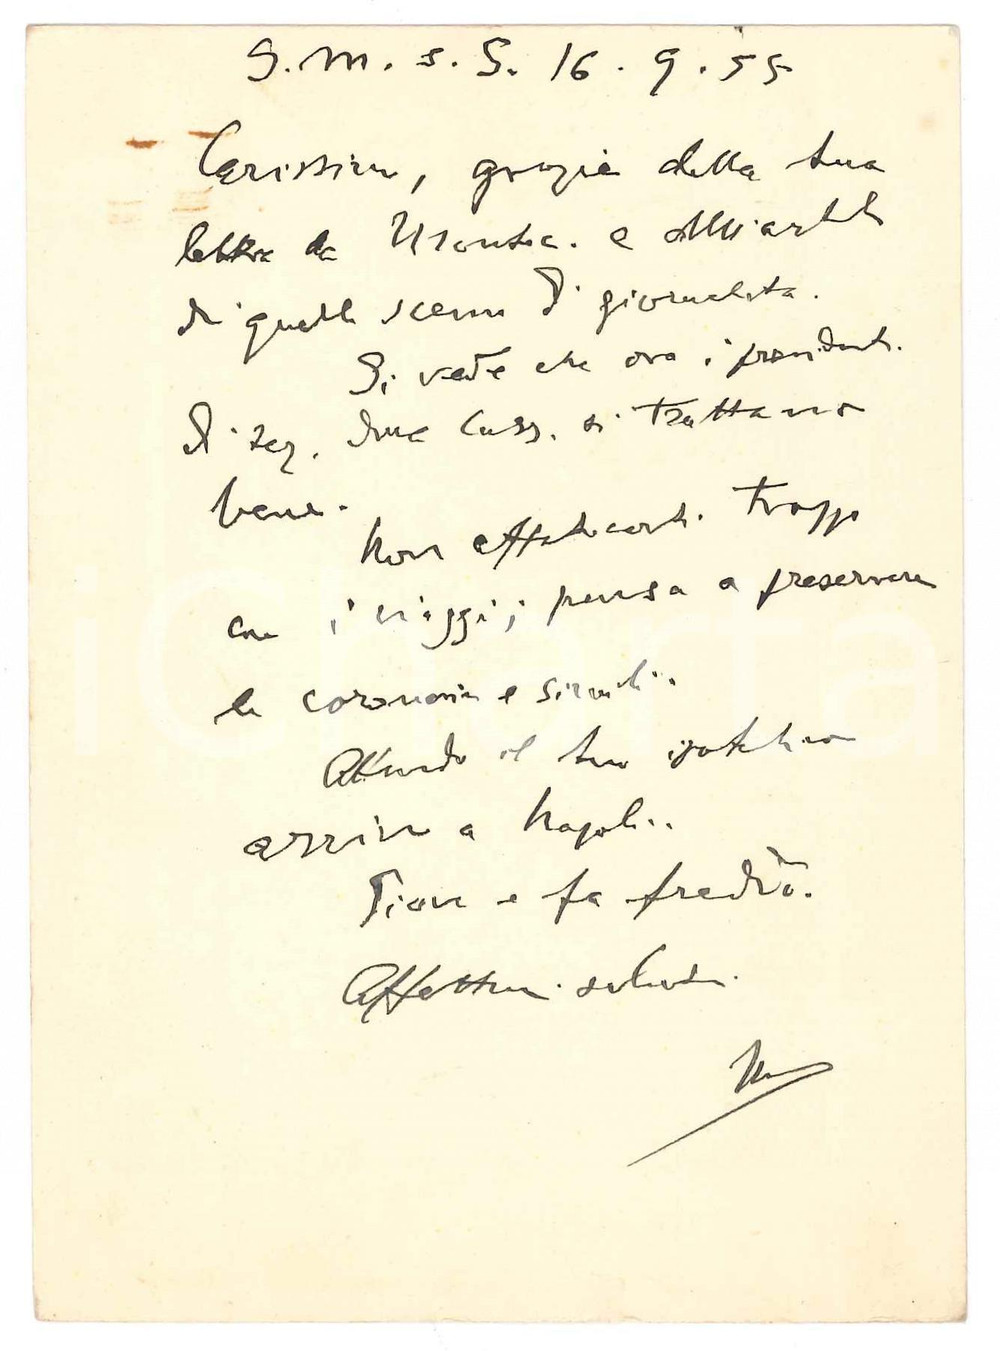 S.M.S.S. 16.9.55
Carissimo, grazie della tua
lettera da e
di quello scemo di giornalista.
Si vede che ora i presidenti
di sez. della Cass. si trattano
bene.
Non affaticarti troppo
con i viaggi; pensa a preservare
le coronarie e simili.
Attendo il tuo ipotetico
arrivo a Napoli.
Piove e fa freddo.
Affettuosi saluti.